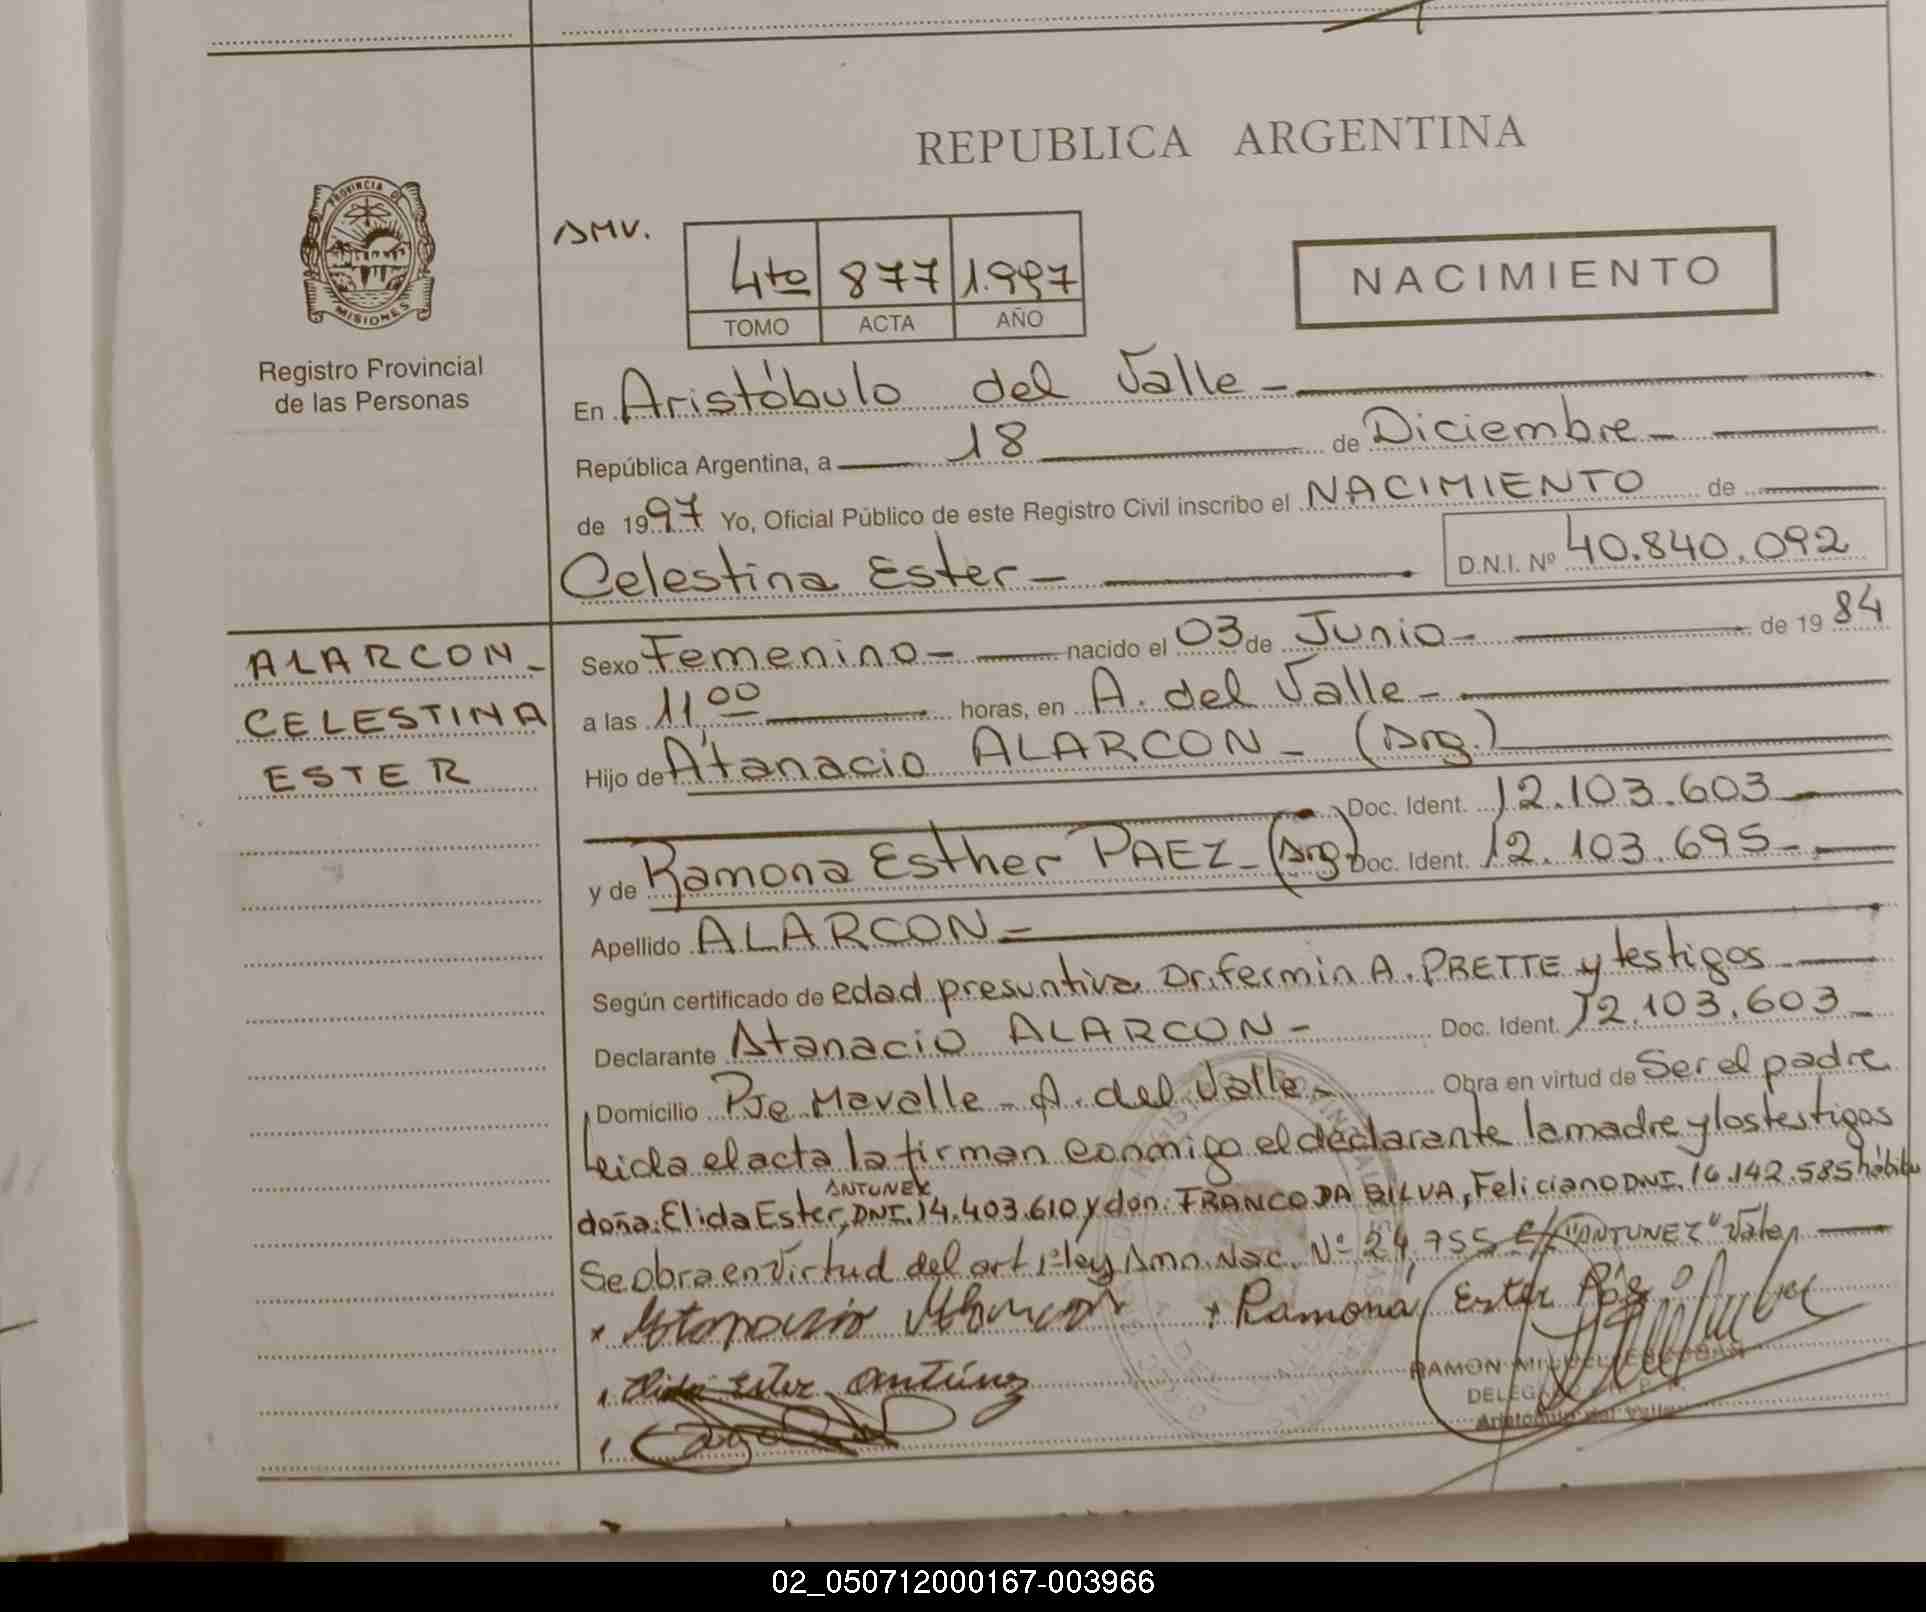 REPUBLICA ARGENTINA
PROVINCIA DE MISIONES
Registro Provincial
de las Personas
AMV.
4to 877 1.997
TOMO ACTA AÑO
NACIMIENTO
En Aristóbulo del Valle -
República Argentina, a 18 de Diciembre -
de 1997 Yo, Oficial Público de este Registro Civil inscribo el NACIMIENTO de
Celestina Ester - D.N.I. Nº 40.840.092
ALARCON -
CELESTINA
ESTER
Sexo Femenino - nacido el 03 de Junio - de 1984
a las 11,00 horas, en A. del Valle -
Hijo de Atanacio ALARCON - (Arg.)
Doc. Ident. 12.103.603
y de Ramona Esther PAEZ - (Arg) Doc. Ident. 12.103.695 -
Apellido ALARCON -
Según certificado de edad presuntiva Dr. Fermin A. PRETTE y testigos
Declarante Atanacio ALARCON - Doc. Ident. 12.103.603 -
Domicilio Pje Mavalle - A. del Valle - Obra en virtud de Ser el padre
Leida el acta la firman conmigo el declarante la madre y los testigos
ANTUNEZ
doña: Elida Ester, DNI. 14.403.610 y don: FRANCO DA SILVA, Feliciano DNI. 16.142.585 hábiles
Se obra en virtud del art 1º ley Amn. Nac. Nº 24.755 E/ "ANTUNEZ" Vale
x Atanacio Alarcon x Ramona Ester Páez
Elida Ester Antúnez
RAMON MIGUEL ESCOBAR
DELEGADO
Aristóbulo del Valle
02_050712000167-003966